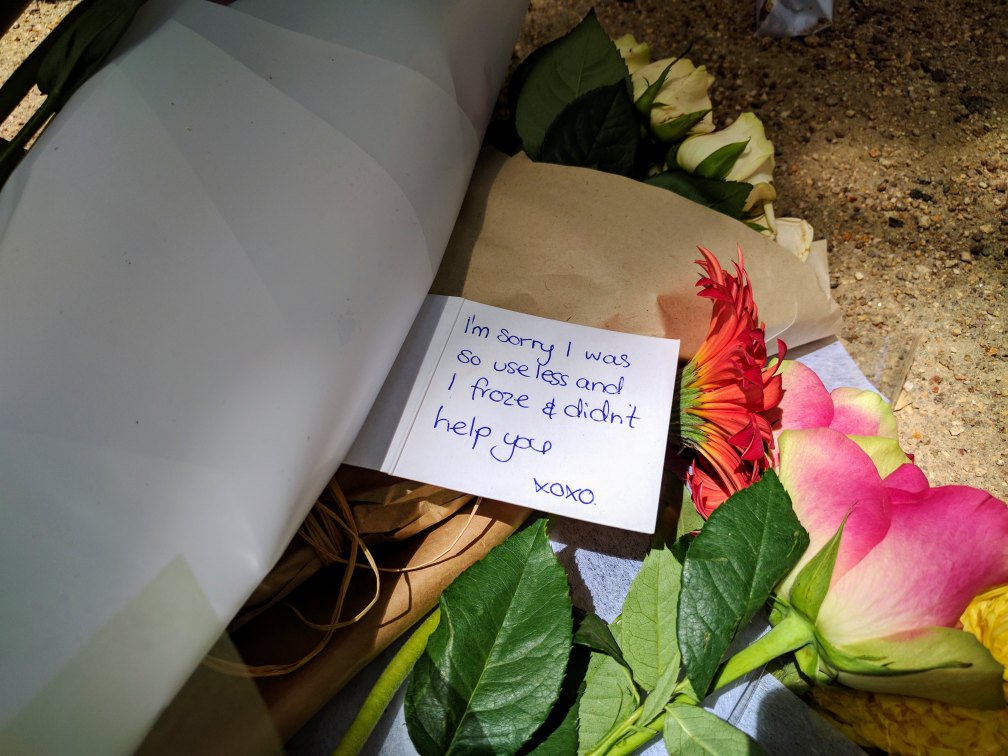 I'm sorry I was
so useless and
I froze & didn't
help you
xoxo.